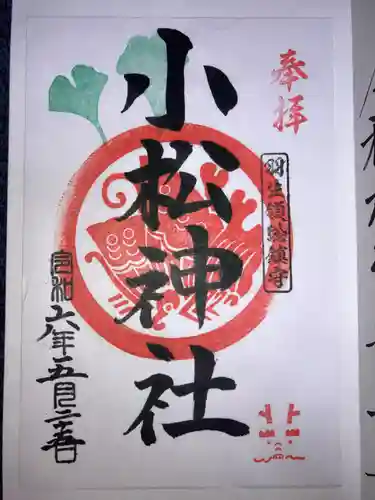 奉拝
羽生領総鎮守
小松神社
令和六年五月二十一日